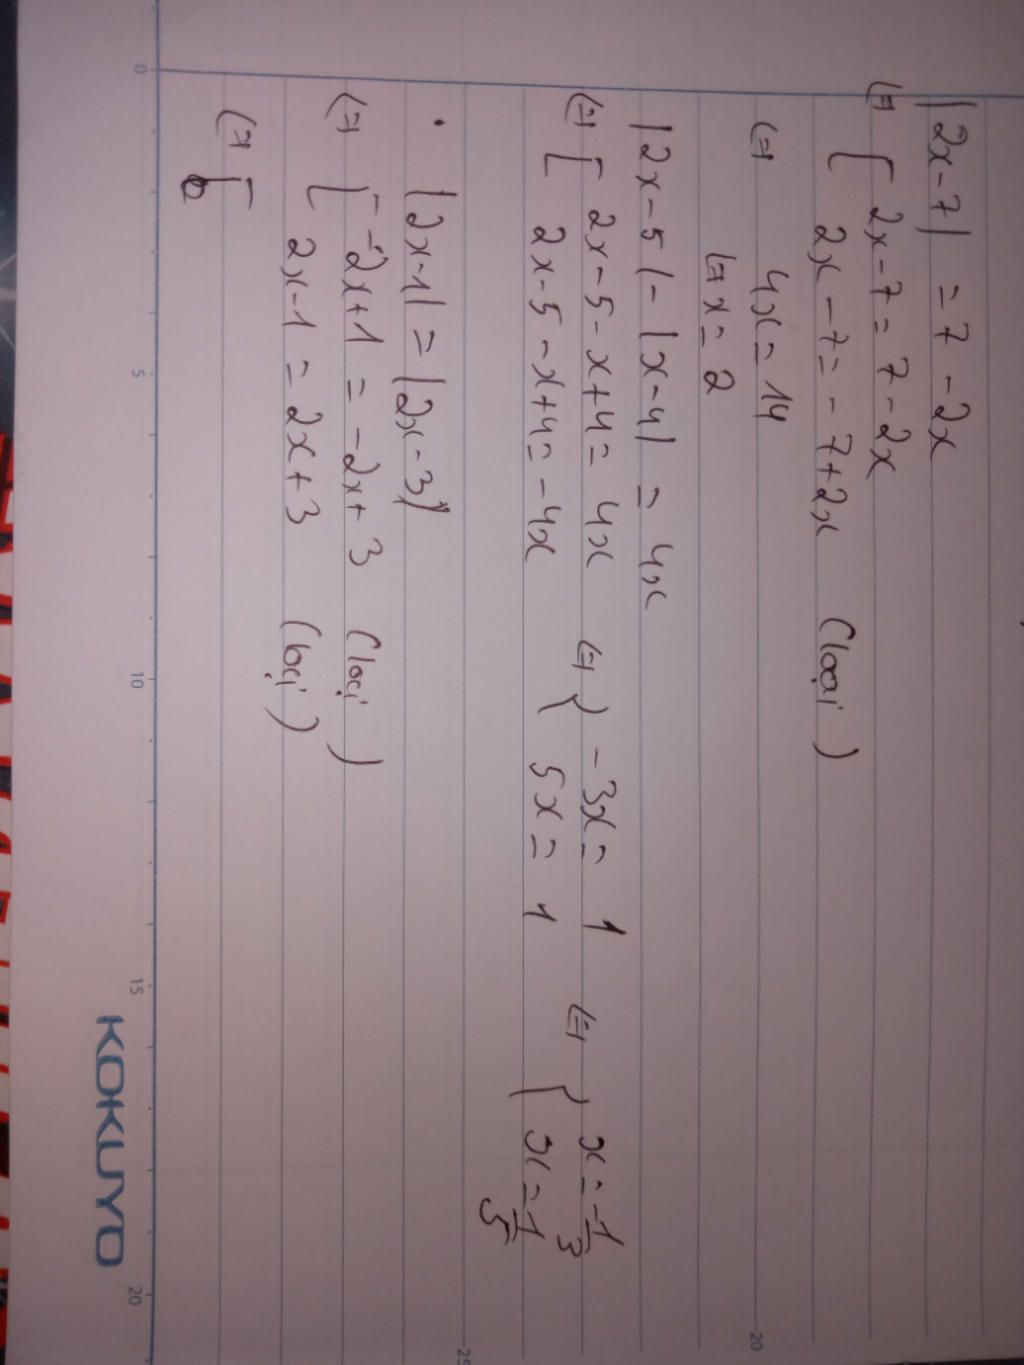 |2x-7| = 7 - 2x
⇔ [ 2x-7 = 7-2x
[ 2x - 7 = - 7+2x (loại)
⇔ 4x = 14
⇔ x = 2
|2x-5| - |x-4| = 4x
⇔ [ 2x-5-x+4 = 4x ⇔ { -3x = 1 ⇔ { x = -1/3
[ 2x-5-x+4 = -4x { 5x = 1 { x = 1/5
. |2x-1| = |2x-3|
⇔ [ -2x+1 = -2x+3 (loại)
[ 2x-1 = 2x+3 (loại)
⇔ [
0 5 10 15 20
20
25
KOKUYO